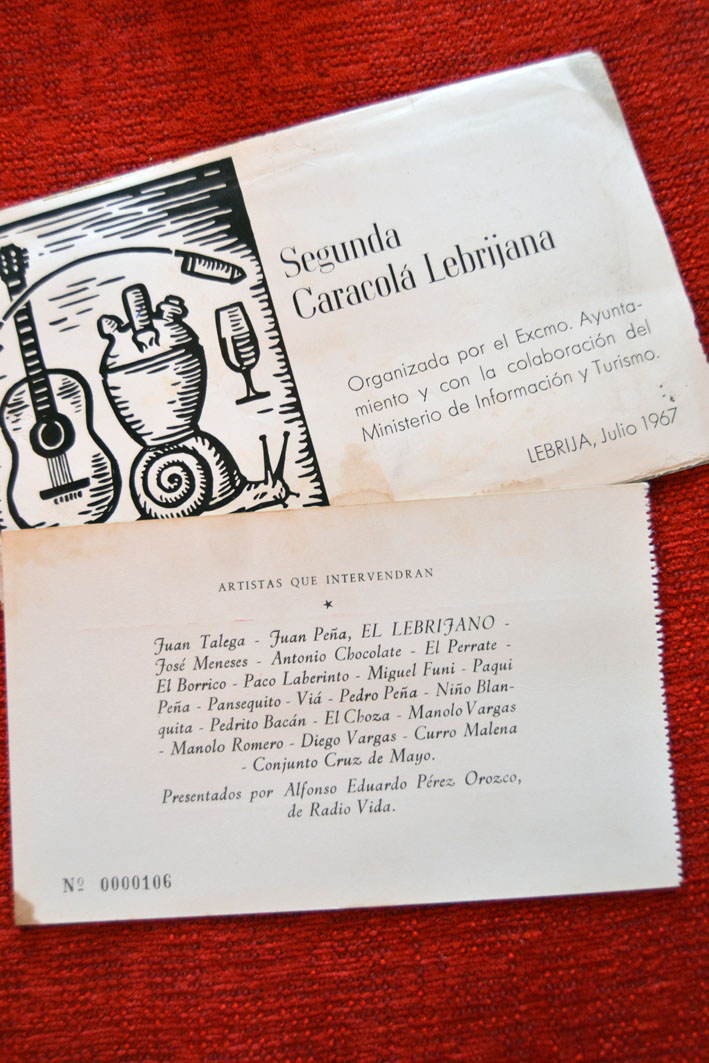 Segunda
Caracolá Lebrijana
Organizada por el Excmo. Ayunta-
miento y con la colaboración del
Ministerio de Información y Turismo.
LEBRIJA, Julio 1967
ARTISTAS QUE INTERVENDRAN
Juan Talega - Juan Peña, EL LEBRIJANO -
José Meneses - Antonio Chocolate - El Perrate -
El Borrico - Paco Laberinto - Miguel Funi - Paqui
Peña - Pansequito - Viá - Pedro Peña - Niño Blan-
quita - Pedrito Bacán - El Choza - Manolo Vargas
- Manolo Romero - Diego Vargas - Curro Malena
- Conjunto Cruz de Mayo.
Presentados por Alfonso Eduardo Pérez Orozco,
de Radio Vida.
Nº 0000106